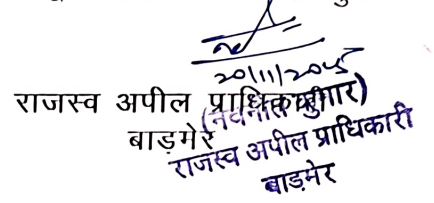 20/11/2025
राजस्व अपील प्राधिकारी
(नवनीत कुमार)
बाड़मेर
राजस्व अपील प्राधिकारी
बाड़मेर